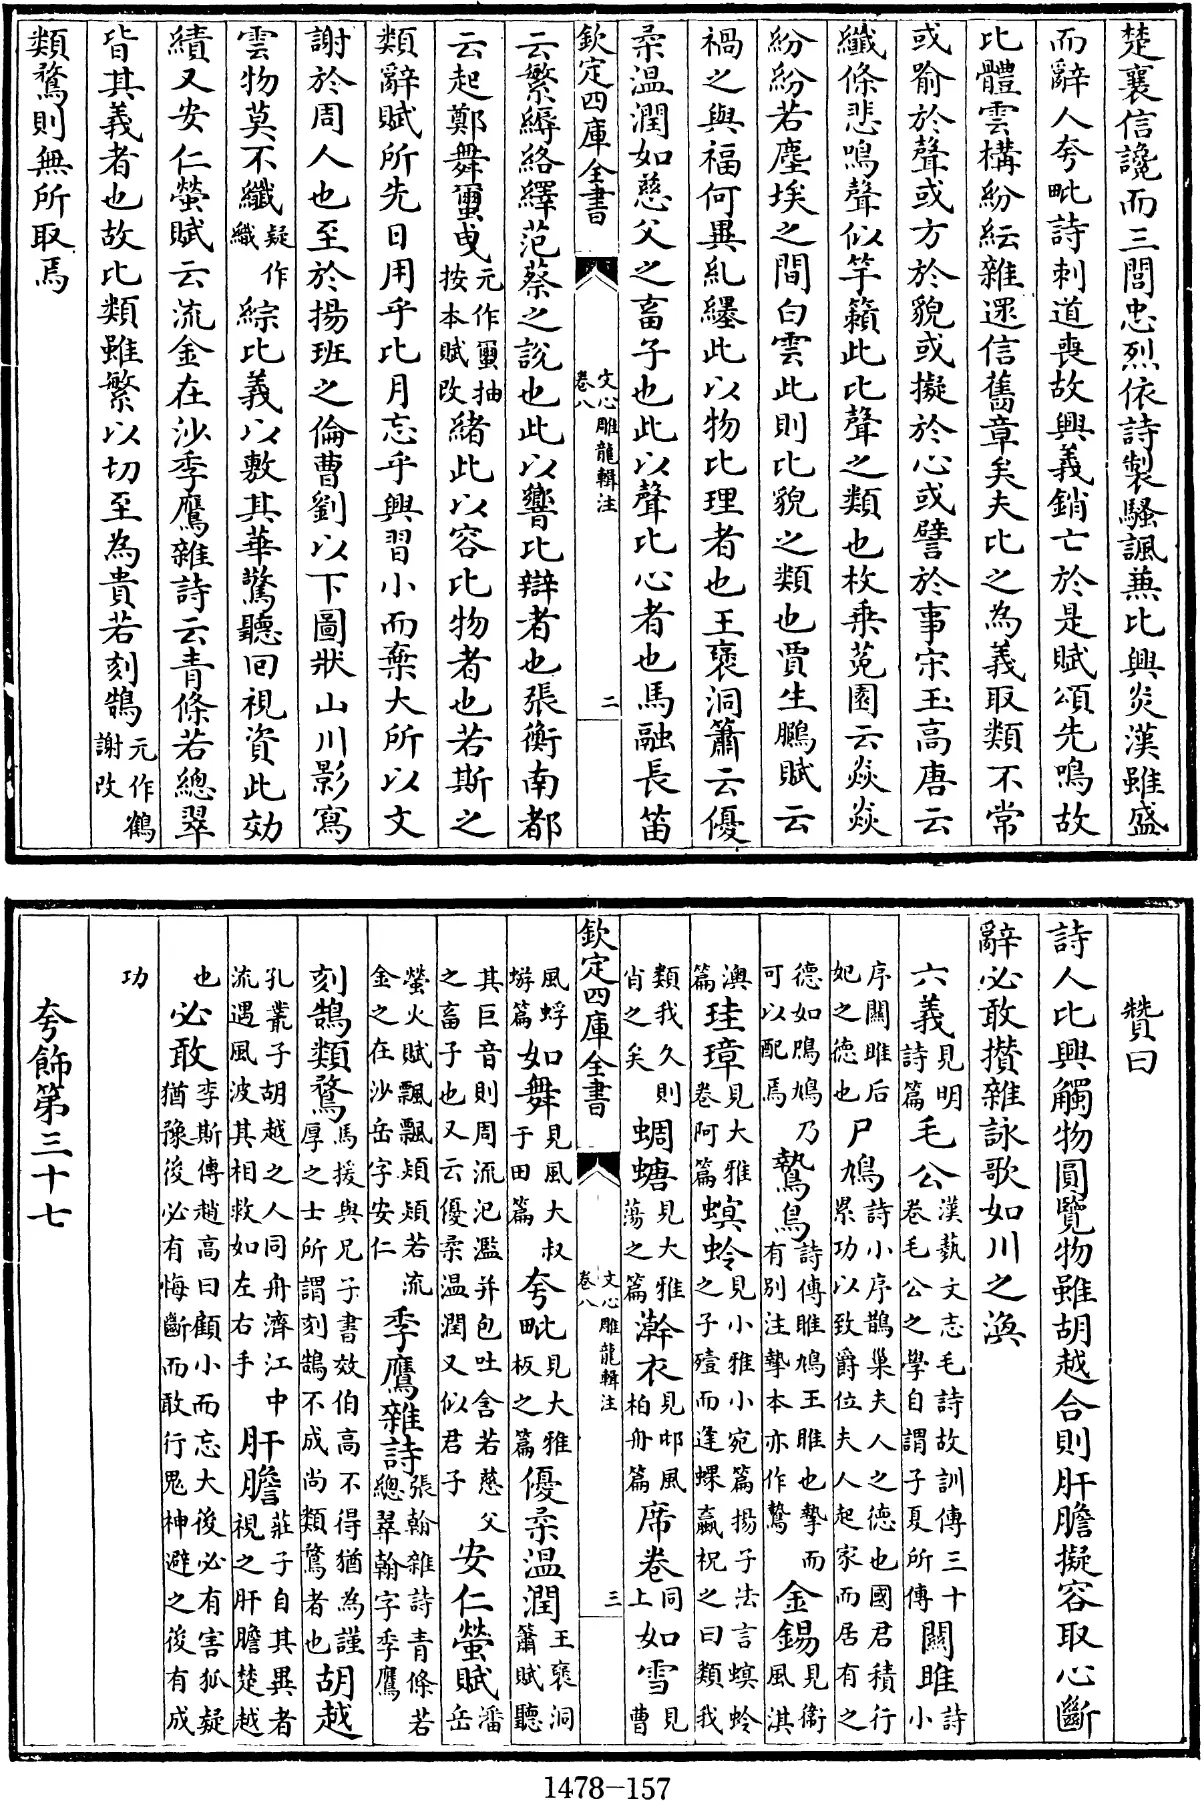 楚襄信讒而三閭忠烈依詩製騷諷兼比興炎漢雖盛
而辭人夸毗詩刺道喪故興義銷亡於是賦頌先鳴故
比體雲構紛紜雜遝信舊章矣夫比之為義取類不常
或喻於聲或方於貌或擬於心或譬於事宋玉高唐云
纖條悲鳴聲似竽籟此比聲之類也枚乗菟園云焱焱
紛紛若塵埃之間白雲此則比貌之類也賈生鵩賦云
禍之與福何異糺纆此以物比理者也王襃洞簫云優
柔温潤如慈父之畜子也此以聲比心者也馬融長笛
欽定四庫全書
文心雕龍輯注
卷八
二
云繁縟絡繹范蔡之說也此以響比辯者也張衡南都
云起鄭舞䘆曵元作䘆抽按本賦改緒此以容比物者也若斯之
類辭賦所先日用乎比月忘乎興習小而棄大所以文
謝於周人也至於揚班之倫曹劉以下圖狀山川影寫
雲物莫不纖疑作織綜比義以敷其華驚聽回視資此効
績又安仁螢賦云流金在沙季鷹雜詩云青條若總翠
皆其義者也故比類雖繁以切至為貴若刻鵠元作鶴謝改
類鶩則無所取焉
贊曰
詩人比興觸物圓覽物雖胡越合則肝膽擬容取心斷
辭必敢攅雜詠歌如川之渙
六義見明詩篇毛公漢藝文志毛詩故訓傳三十卷毛公之學自謂子夏所傳關雎詩小
序關雎后妃之德也尸鳩詩小序鵲巢夫人之德也國君積行累功以致爵位夫人起家而居有之
德如鳲鳩乃可以配焉鷙鳥詩傳雎鳩王雎也摯而有別注摯本亦作鷙金錫見衞風淇
澳篇珪璋見大雅卷阿篇螟蛉見小雅小宛篇揚子法言螟蛉之子殪而逢蜾蠃祝之曰類我
類我久則肖之矣蜩螗見大雅蕩之篇澣衣見邶風柏舟篇席卷同上如雪見曹
欽定四庫全書
文心雕龍輯注
卷八
三
風蜉蝣篇如舞見風大叔于田篇夸毗見大雅板之篇優柔温潤王襃洞簫賦聽
其巨音則周流氾濫并包吐含若慈父之畜子也又云優柔温潤又似君子安仁螢賦潘岳
螢火賦飄飄熲熲若流金之在沙岳字安仁季鷹雜詩張翰雜詩青條若總翠翰字季鷹
刻鵠類鶩馬援與兄子書效伯高不得猶為謹厚之士所謂刻鵠不成尚類鶩者也胡越
孔叢子胡越之人同舟濟江中流遇風波其相救如左右手肝膽莊子自其異者視之肝膽楚越
也必敢李斯傳趙高曰顧小而忘大後必有害狐疑猶豫後必有悔斷而敢行鬼神避之後有成
功
夸飾第三十七
1478-157